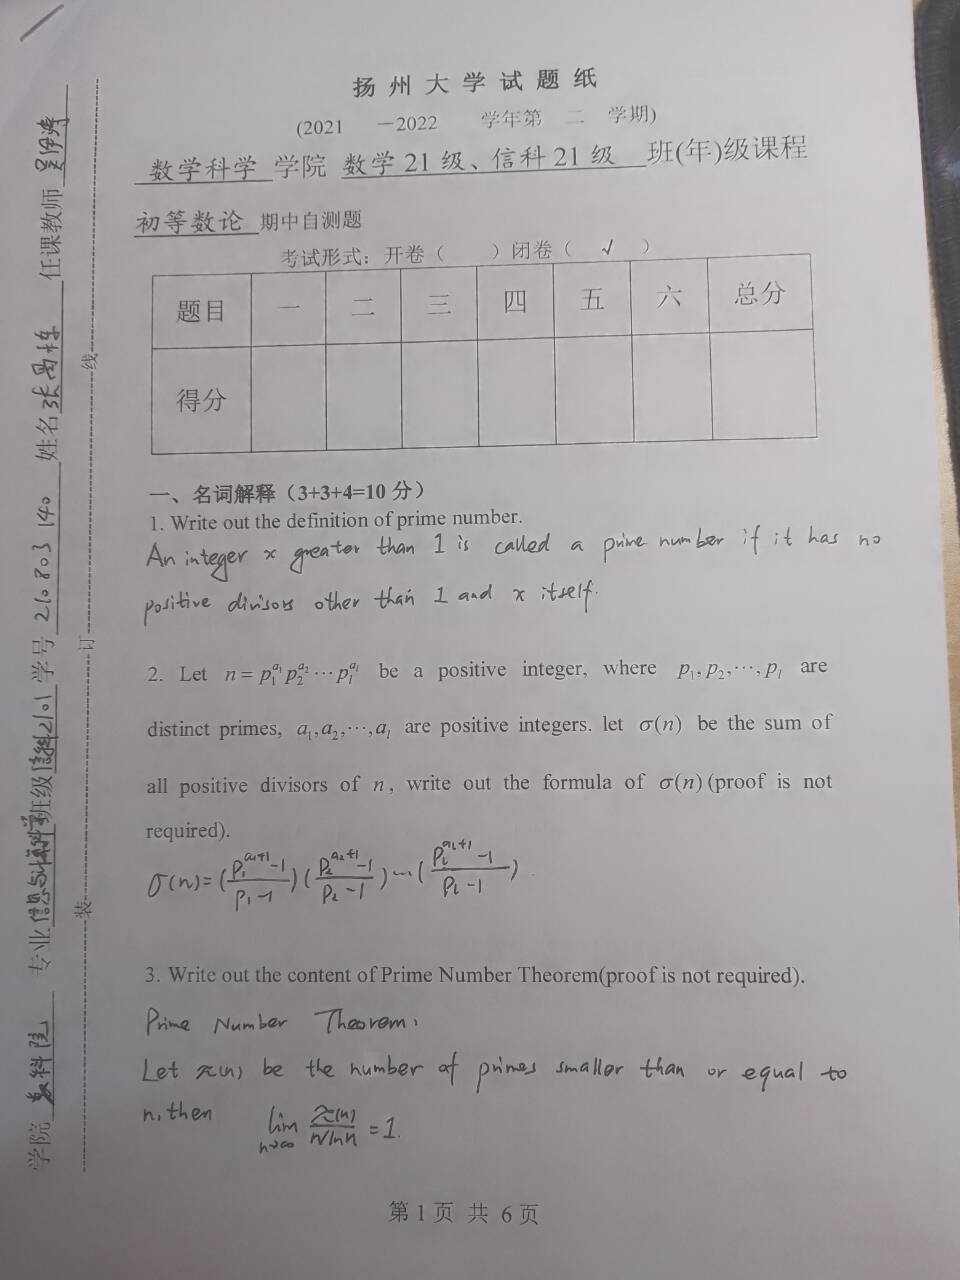 扬州大学试题纸
(2021 －2022 学年第 二 学期)
数学科学 学院 数学21级、信科21级 班(年)级课程
初等数论 期中自测题
考试形式：开卷（ ）闭卷（ √ ）
题目 一 二 三 四 五 六 总分
得分
一、名词解释（3+3+4=10 分）
1. Write out the definition of prime number.
An integer x greater than 1 is called a prime number if it has no
positive divisors other than 1 and x itself.
2. Let n = p₁^{a₁} p₂^{a₂} ⋯ p_l^{a_l} be a positive integer, where p₁, p₂, ⋯, p_l are
distinct primes, a₁, a₂, ⋯, a_l are positive integers. let σ(n) be the sum of
all positive divisors of n, write out the formula of σ(n) (proof is not
required).
σ(n) = (\frac{p₁^{a₁+1}-1}{p₁-1}) (\frac{p₂^{a₂+1}-1}{p₂-1}) ⋯ (\frac{p_l^{a_l+1}-1}{p_l-1})
3. Write out the content of Prime Number Theorem(proof is not required).
Prime Number Theorem:
Let π(n) be the number of primes smaller than or equal to
n, then lim_{n→∞} \frac{π(n)}{n/ln n} = 1.
第 1 页 共 6 页
学院 数科院 专业 信息与计算科学 班级 信科2101 学号 210803140 姓名 张 任课教师
装 订 线